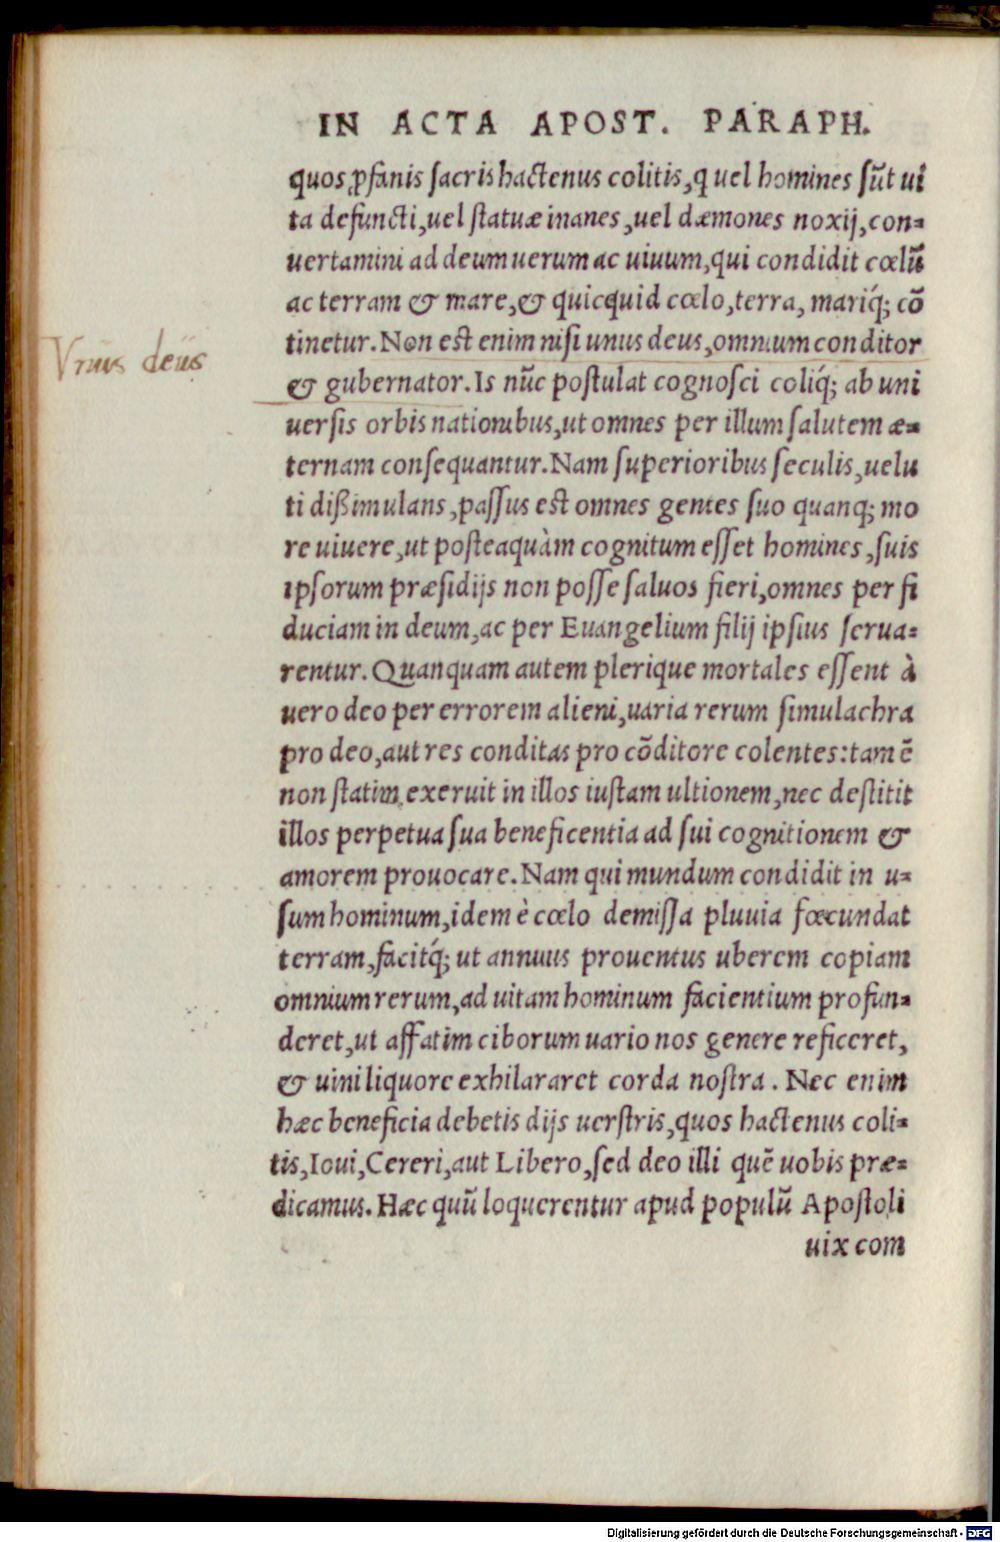 IN ACTA APOST. PARAPH.
quos ꝓfanis sacris hactenus colitis, q uel homines sũt ui
ta defuncti, uel statuæ inanes, uel dæmones noxij, con-
uertamini ad deum uerum ac uiuum, qui condidit cœlũ
ac terram & mare, & quicquid cœlo, terra, mariq́; cō
tinetur. Non est enim nisi unus deus, omnium conditor
Vnus deus
& gubernator. Is nũc postulat cognosci coliq́; ab uni
uersis orbis nationibus, ut omnes per illum salutem æ-
ternam consequantur. Nam superioribus seculis, uelu
ti dißimulans, passus est omnes gentes suo quanq; mo
re uiuere, ut posteaquàm cognitum esset homines, suis
ipsorum præsidijs non posse saluos fieri, omnes per fi
duciam in deum, ac per Euangelium filij ipsius serua-
rentur. Quanquam autem plerique mortales essent à
uero deo per errorem alieni, uaria rerum simulachra
pro deo, aut res conditas pro cōditore colentes: tamē
non statim exeruit in illos iustam ultionem, nec destitit
illos perpetua sua beneficentia ad sui cognitionem &
amorem prouocare. Nam qui mundum condidit in u-
sum hominum, idem è cœlo demissa pluuia fœcundat
terram, facitq́; ut annuus prouentus uberem copiam
omnium rerum, ad uitam hominum facientium profun-
deret, ut affatim ciborum uario nos genere reficeret,
& uini liquore exhilararet corda nostra. Nec enim
hæc beneficia debetis dijs uerstris, quos hactenus coli-
tis, Ioui, Cereri, aut Libero, sed deo illi quē uobis præ-
dicamus. Hæc quũ loquerentur apud populũ Apostoli
uix com
Digitalisierung gefördert durch die Deutsche Forschungsgemeinschaft - DFG